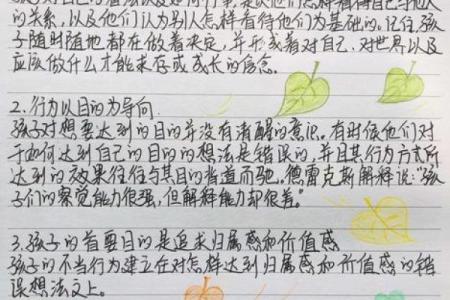 的关系,以及他们认为别人怎样看待他们为基础的。记住,孩
子随时随地都在做着决定,并形成着对自己、对世界以及
应该做什么才能求存或成长的信念。
2.行为以目的为导向.
孩子对想要达到的目的并没有清醒的意识。有时候他们对
于如何达到自己的目的的想法是错误的,并且其行为方式所
达到的效果往往与其目的背道而驰,德雷克斯解释说:“孩
子们的察觉能力很强,但解释能力却很差。”
3.孩子的首要目的是追求归属感和价值感
孩子的不当行为建立在对怎样达到归属感和价值感的错
误想法之上。